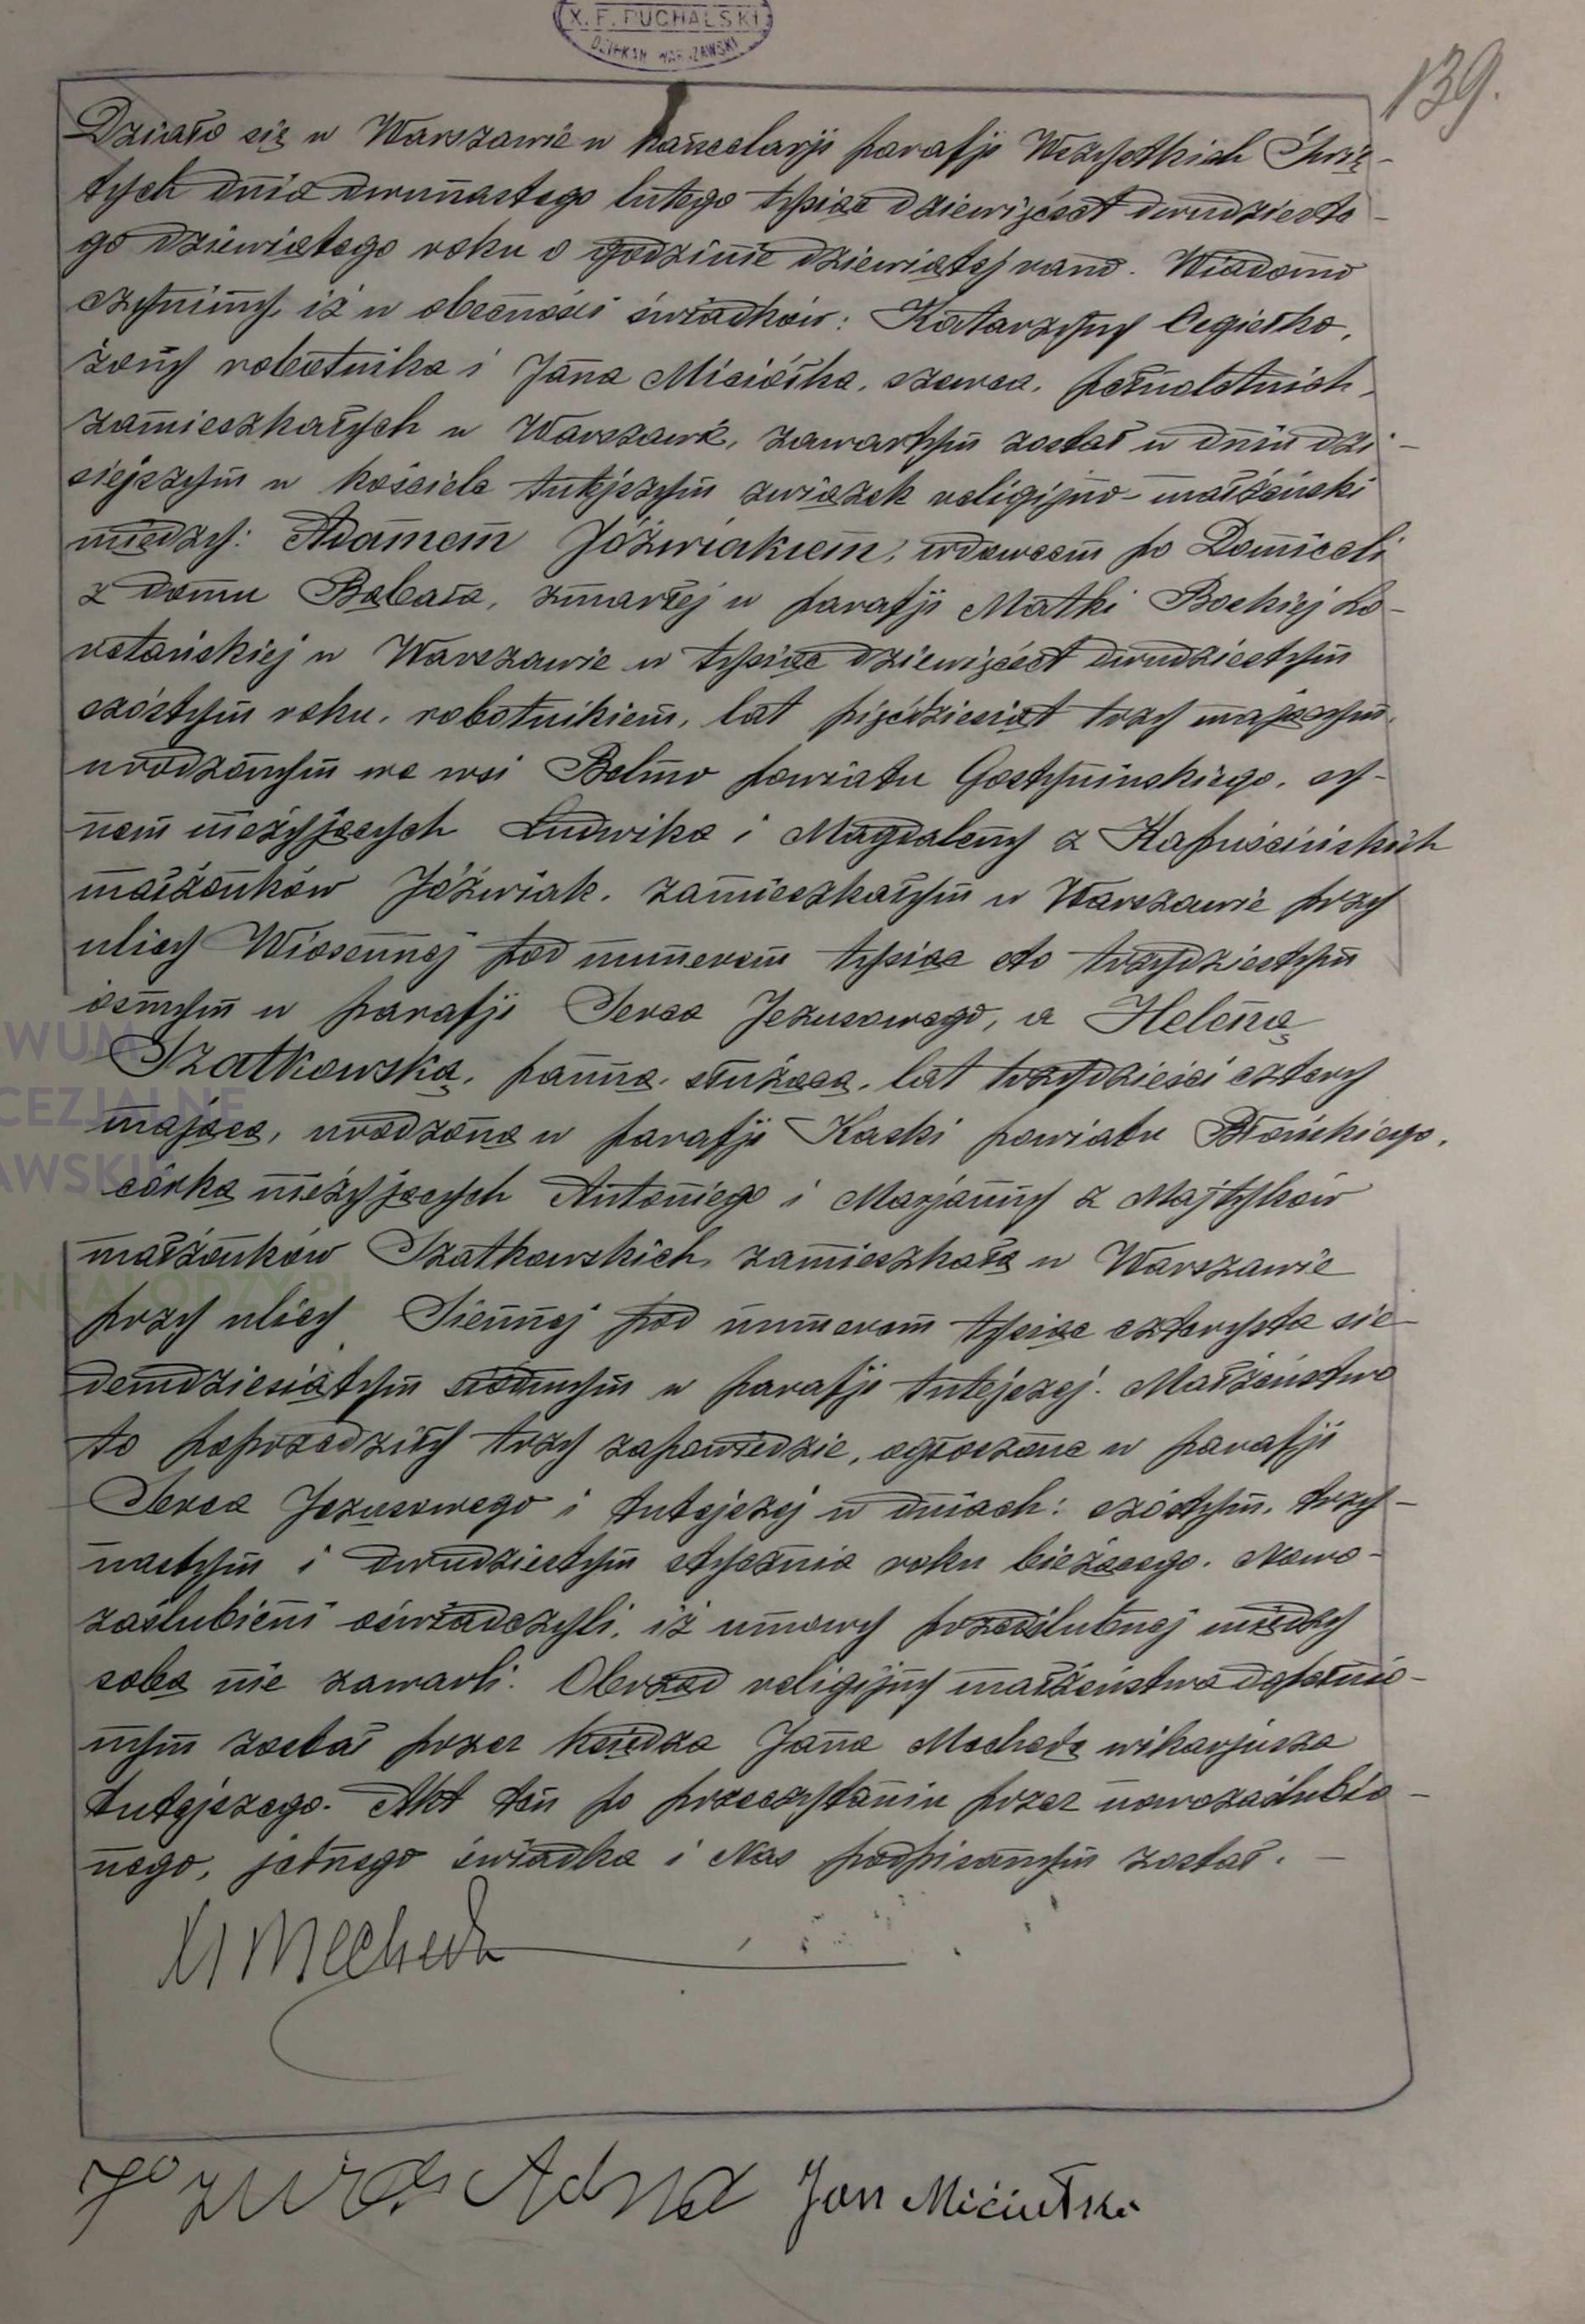 X. F. PUCHALSKI
DZIEKAN WARSZAWSKI
139.
Działo się w Warszawie w kancelarji parafji Wszystkich Świę-
tych dnia dwunastego lutego tysiąc dziewięćset dwudzieste-
go dziewiątego roku o godzinie dziewiątej rano. Wiadomo
czynimy, iż w obecności świadków: Katarzyny Cegiełko,
żony robotnika i Jana Miciółka, szewca, pełnoletnich,
zamieszkałych w Warszawie, zawartym został w dniu dzi-
siejszym w kościele tutejszym związek religijno-małżeński
między: Adamem Jóźwiakiem, wdowcem po Domiceli
z domu Bąbała, zmarłej w parafji Matki Boskiej Lo-
retańskiej w Warszawie w tysiąc dziewięćset dwudziestym
szóstym roku, robotnikiem, lat pięćdziesiąt trzy mającym,
urodzonym we wsi Belno powiatu Gostynińskiego, sy-
nem nieżyjących Ludwika i Magdaleny z Kapuścińskich
małżonków Jóźwiak, zamieszkałym w Warszawie przy
ulicy Wiosennej pod numerem tysiąc sto trzydziestym
ósmym w parafji Serca Jezusowego, a Heleną
Szatkowską, panną, służącą, lat trzydzieści cztery
mającą, urodzoną w parafji Kaski powiatu Błońskiego,
córką nieżyjących Antoniego i Marjanny z Majtyków
małżonków Szatkowskich, zamieszkałą w Warszawie
przy ulicy Siennej pod numerem tysiąc czterysta sie-
demdziesiątym siódmym w parafji tutejszej. Małżeństwo
to poprzedziły trzy zapowiedzie, ogłoszone w parafji
Serca Jezusowego i tutejszej w dniach: szóstym, trzy-
nastym i dwudziestym stycznia roku bieżącego. Nowo-
zaślubieni oświadczyli, iż umowy przedślubnej między
sobą nie zawarli. Obrząd religijny małżeństwa dopełnio-
nym został przez księdza Jana Mecheda wikarjusza
tutejszego. Akt ten po przeczytaniu przez nowozaślubio-
nego, jednego świadka i Nas podpisanym został.
Jan